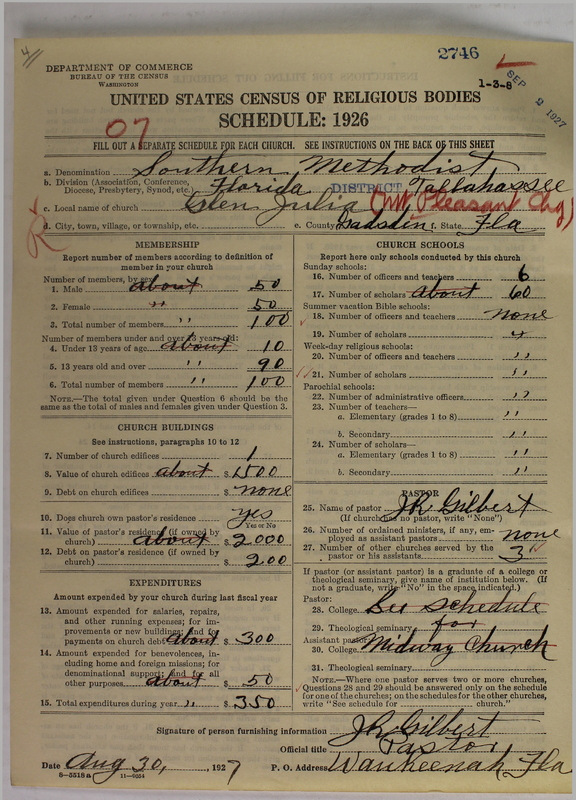 4
2746
1-3-8
SEP 9 1927
DEPARTMENT OF COMMERCE
BUREAU OF THE CENSUS
WASHINGTON
UNITED STATES CENSUS OF RELIGIOUS BODIES
SCHEDULE: 1926
07
FILL OUT A SEPARATE SCHEDULE FOR EACH CHURCH. SEE INSTRUCTIONS ON THE BACK OF THIS SHEET
a. Denomination Southern Methodist
b. Division (Association, Conference, Diocese, Presbytery, Synod, etc.) Florida DISTRICT Tallahassee
c. Local name of church Glen Julia (Mt Pleasant Chg)
d. City, town, village, or township, etc. e. County Gadsden f. State Fla
MEMBERSHIP
Report number of members according to definition of
member in your church
Number of members, by sex:
1. Male about 50
2. Female " 50
3. Total number of members " 100
Number of members under and over 13 years old:
4. Under 13 years of age about 10
5. 13 years old and over " 90
6. Total number of members " 100
NOTE.—The total given under Question 6 should be the
same as the total of males and females given under Question 3.
CHURCH BUILDINGS
See instructions, paragraphs 10 to 12
7. Number of church edifices 1
8. Value of church edifices about $1500
9. Debt on church edifices $ none
10. Does church own pastor's residence yes
Yes or No
11. Value of pastor's residence (if owned by
church) about $2000
12. Debt on pastor's residence (if owned by
church) $200
EXPENDITURES
Amount expended by your church during last fiscal year
13. Amount expended for salaries, repairs,
and other running expenses; for im-
provements or new buildings; and for
payments on church debt about $300
14. Amount expended for benevolences, in-
cluding home and foreign missions; for
denominational support; and for all
other purposes about $50
15. Total expenditures during year " $350
CHURCH SCHOOLS
Report here only schools conducted by this church
Sunday schools:
16. Number of officers and teachers 6
17. Number of scholars about 60
Summer vacation Bible schools:
18. Number of officers and teachers none
19. Number of scholars "
Week-day religious schools:
20. Number of officers and teachers "
21. Number of scholars "
Parochial schools:
22. Number of administrative officers "
23. Number of teachers—
a. Elementary (grades 1 to 8) "
b. Secondary "
24. Number of scholars—
a. Elementary (grades 1 to 8) "
b. Secondary "
PASTOR
25. Name of pastor JR Gilbert
(If church has no pastor, write "None")
26. Number of ordained ministers, if any, em-
ployed as assistant pastors none
27. Number of other churches served by the
pastor or his assistants 3
If pastor (or assistant pastor) is a graduate of a college or
theological seminary, give name of institution below. (If
not a graduate, write "No" in the space indicated.)
Pastor:
28. College See schedule
29. Theological seminary for
Assistant pastor:
30. College Midway Church
31. Theological seminary
NOTE.—Where one pastor serves two or more churches,
Questions 28 and 29 should be answered only on the schedule
for one of the churches; on the schedules for the other churches,
write "See schedule for church."
Signature of person furnishing information JR Gilbert
Official title Pastor
Date Aug 30, 1927 P. O. Address Waukeenah Fla
8—5518a 11—9054